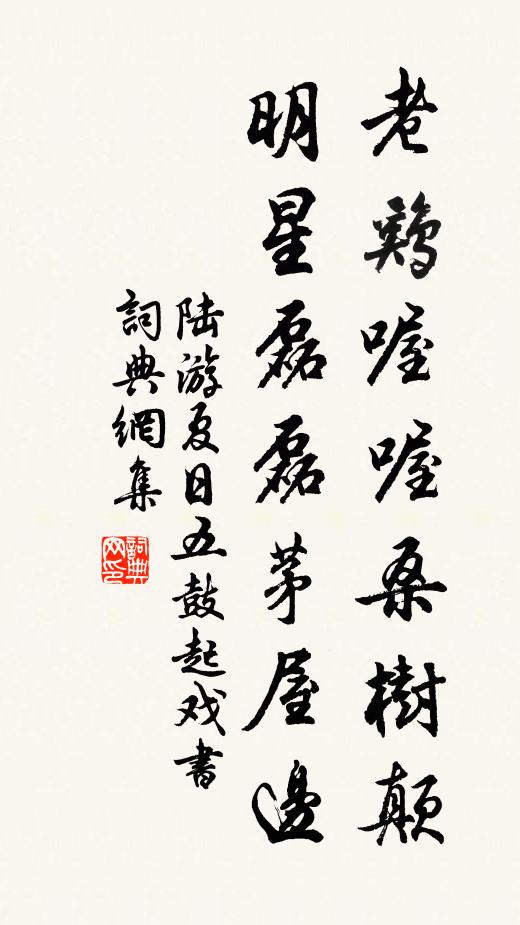 老鷄喔喔桑樹顛
明星磊磊茅屋邊
陆游夏日五鼓起戏書
詞典網集
詞典網印